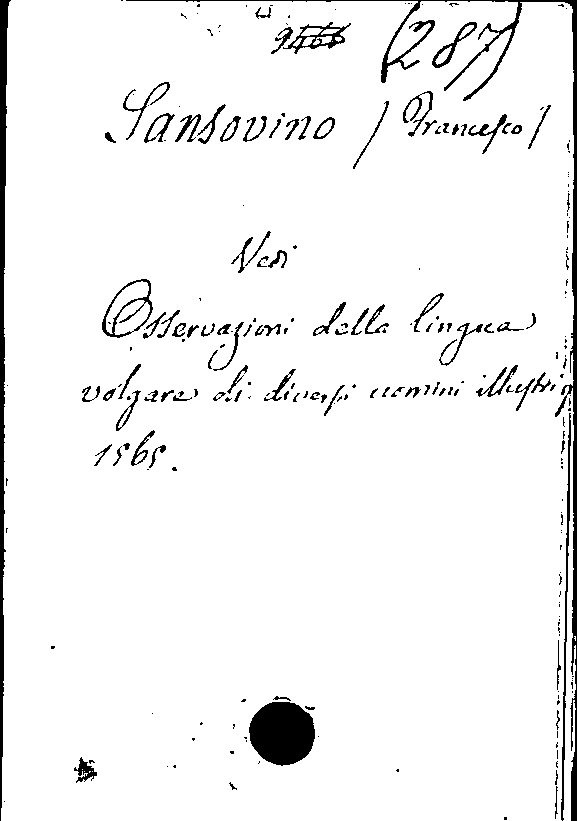 (287)
Sansovino / Francesco /
Vedi
Osservazioni della lingua
volgare di diversi uomini illustri
1565.